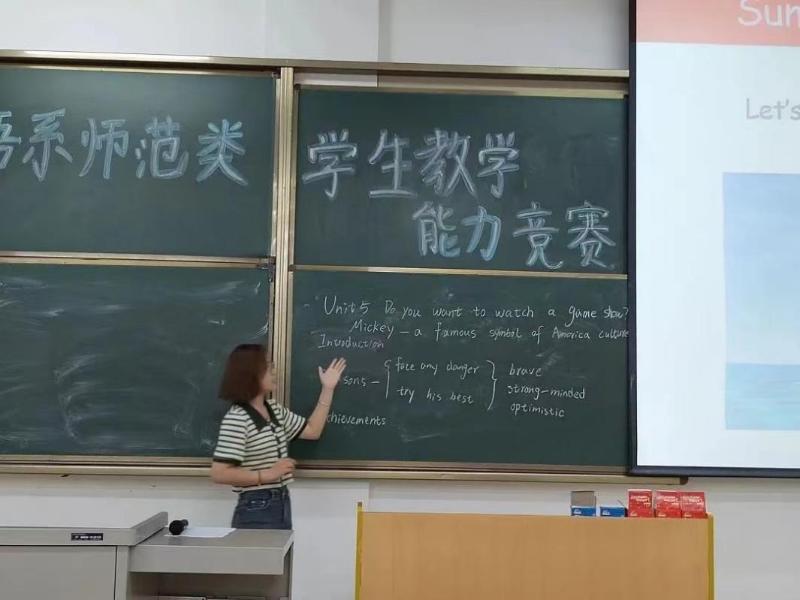 语系师范类
学生教学
能力竞赛
Unit 5 Do you want to watch a game show?
Mickey — a famous symbol of America culture
Introduction
sons — { face any danger } brave
try his best strong-minded
optimistic
chievements
Sum
Let's